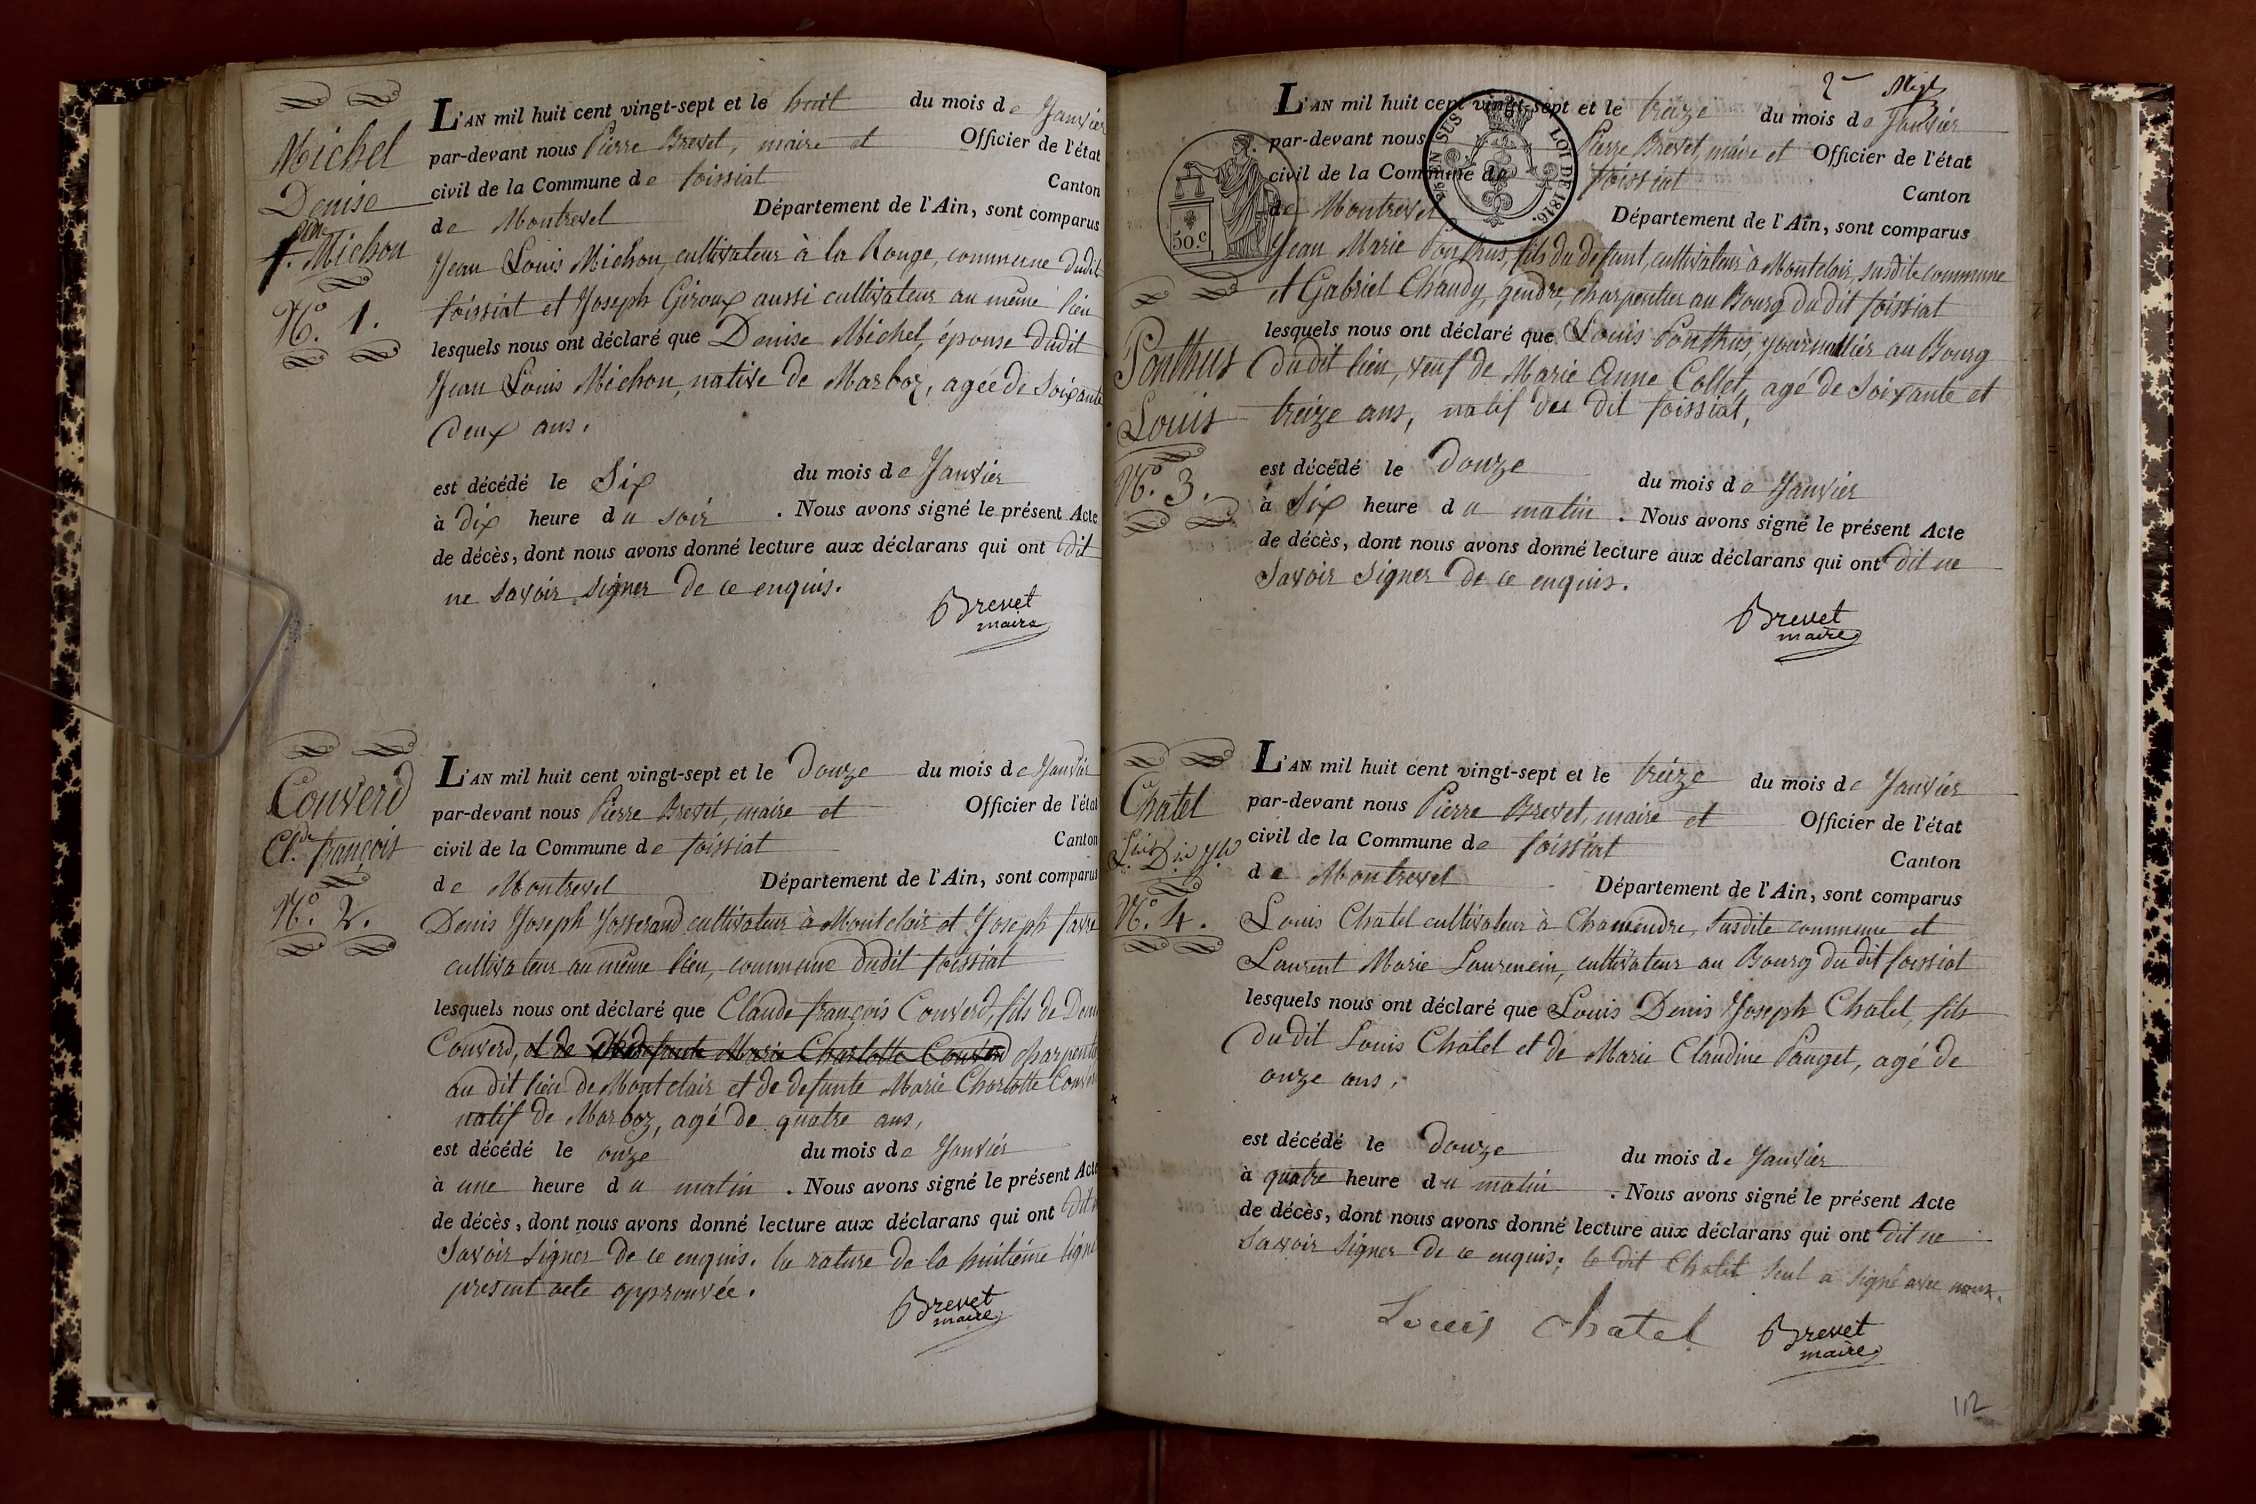 Michel
Denise
f.e Michon
N.o 1.
L'AN mil huit cent vingt-sept et le huit du mois de Janvier
par-devant nous Pierre Brevet, maire et Officier de l'état
civil de la Commune de foissiat Canton
de Montrevel Département de l'Ain, sont comparus
Jean Louis Michon, cultivateur à la Rouge, commune dudit
foissiat et Joseph Giroux aussi cultivateur au même lieu
lesquels nous ont déclaré que Denise Michel, épouse dudit
Jean Louis Michon, native de Marboz, agée de soixante
deux ans,
est décédé le Six du mois de Janvier
à dix heure du soir. Nous avons signé le présent Acte
de décès, dont nous avons donné lecture aux déclarans qui ont dit
ne savoir signer de ce enquis.
Brevet
maire
Converd
Cl.de françois
N.o 2.
L'AN mil huit cent vingt-sept et le douze du mois de Janvier
par-devant nous Pierre Brevet, maire et Officier de l'état
civil de la Commune de foissiat Canton
de Montrevel Département de l'Ain, sont comparus
Denis Joseph Josserand cultivateur à Montclair et Joseph favre
cultivateur au même lieu, commune dudit foissiat
lesquels nous ont déclaré que Claude françois Converd, fils de Denis
Converd, et de defunte Marie Charlotte Converd charpentier
au dit lieu de Montclair et de defunte Marie Charlotte Converd
natif de Marboz, agé de quatre ans,
est décédé le onze du mois de Janvier
à une heure du matin. Nous avons signé le présent Acte
de décès, dont nous avons donné lecture aux déclarans qui ont dit n
savoir signer de ce enquis. la rature de la huitième ligne
present acte approuvée.
Brevet
maire
2
L'AN mil huit cent vingt-sept et le treize du mois de Janvier
par-devant nous Pierre Brevet, maire et Officier de l'état
civil de la Commune de foissiat Canton
de Montrevel Département de l'Ain, sont comparus
EN SUS LOI DE 1816.
50.C
Jean Marie Ponthus, fils du defunt, cultivateur à Montclair, susdite commune
et Gabriel Chaudy, gendre, charpentier au Bourg du dit foissiat
lesquels nous ont déclaré que Louis Ponthus, journallier au Bourg
du dit lieu, veuf de Marie Anne Collet, agé de soixante et
treize ans, natif du dit foissiat,
Ponthus
Louis
N.o 3.
est décédé le douze du mois de Janvier
à six heure du matin. Nous avons signé le présent Acte
de décès, dont nous avons donné lecture aux déclarans qui ont dit ne
savoir signer de ce enquis.
Brevet
maire
Chatel
N.o 4.
L'AN mil huit cent vingt-sept et le treize du mois de Janvier
par-devant nous Pierre Brevet, maire et Officier de l'état
civil de la Commune de foissiat Canton
de Montrevel Département de l'Ain, sont comparus
Louis Chatel cultivateur à Chamendre, susdite commune et
Laurent Marie Laurencin, cultivateur au Bourg du dit foissiat
lesquels nous ont déclaré que Louis Denis Joseph Chatel, fils
du dit Louis Chatel et de Marie Claudine Pauget, agé de
onze ans,
est décédé le douze du mois de Janvier
à quatre heure du matin. Nous avons signé le présent Acte
de décès, dont nous avons donné lecture aux déclarans qui ont dit ne
savoir signer de ce enquis; le dit Chatel seul a signé avec nous.
Louis Chatel
Brevet
maire
112